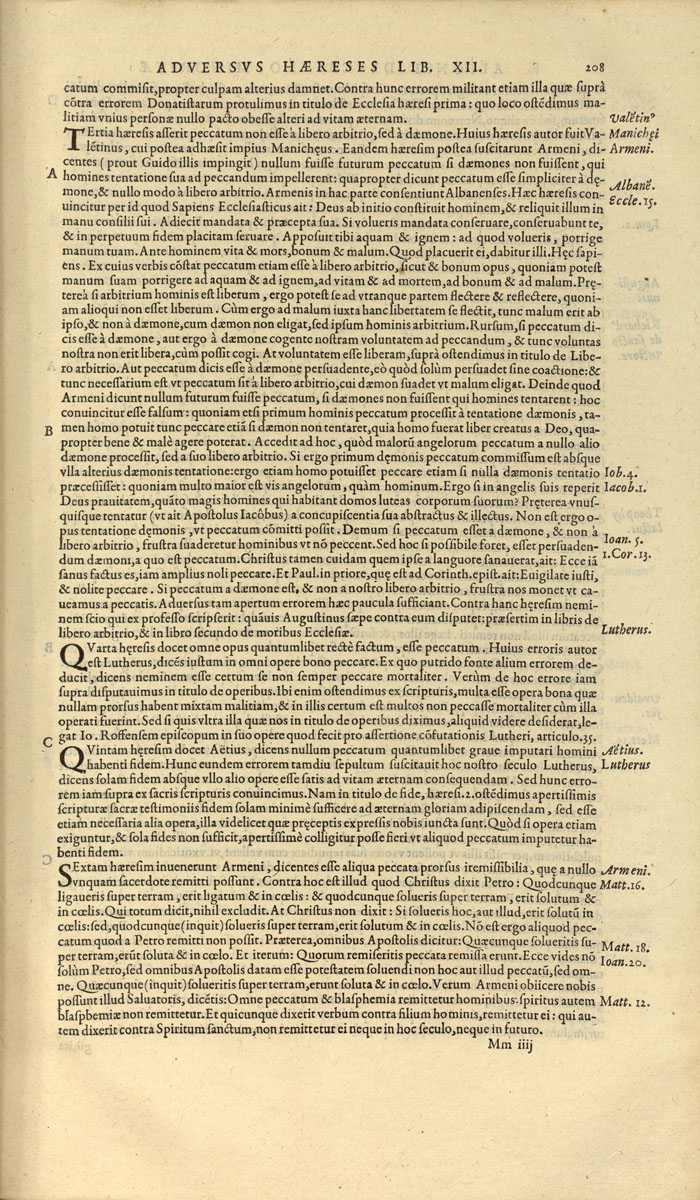 ADVERSVS HÆRESES LIB. XII. 208
catum commisit,propter culpam alterius damnet. Contra hunc errorem militant etiam illa quæ suprà
cōtra errorem Donatistarum protulimus in titulo de Ecclesia hæresi prima : quo loco ostēdimus ma-
litiam vnius personæ nullo pacto obesse alteri ad vitam æternam.
Valētinꝰ
TErtia hæresis asserit peccatum non esse à libero arbitrio, sed à dæmone. Huius hæresis autor fuit Va-
Manichęi
lētinus, cui postea adhæsit impius Manichęus. Eandem hæresim postea suscitarunt Armeni, di-
Armeni.
centes ( prout Guido illis impingit ) nullum fuisse futurum peccatum si dæmones non fuissent, qui
A
homines tentatione sua ad peccandum impellerent: quapropter dicunt peccatum esse simpliciter à dę-
mone,& nullo modo à libero arbitrio. Armenis in hac parte consentiunt Albanenses. Hæc hæresis con-
Albanē.
uincitur per id quod Sapiens Ecclesiasticus ait: Deus ab initio constituit hominem,& reliquit illum in
Eccle.15.
manu consilii sui. Adiecit mandata & præcepta sua. Si volueris mandata conseruare,conseruabunt te,
& in perpetuum fidem placitam seruare. Apposuit tibi aquam & ignem : ad quod volueris, porrige
manum tuam. Ante hominem vita & mors,bonum & malum. Quod placuerit ei,dabitur illi. Hęc sapi-
ens. Ex cuius verbis cōstat peccatum etiam esse à libero arbitrio, sicut & bonum opus, quoniam potest
manum suam porrigere ad aquam & ad ignem,ad vitam & ad mortem,ad bonum & ad malum. Prę-
tereà si arbitrium hominis est liberum, ergo potest se ad vtranque partem flectere & reflectere, quoni-
am alioqui non esset liberum. Cùm ergo ad malum iuxta hanc libertatem se flectit, tunc malum erit ab
ipso,& non à dæmone,cum dæmon non eligat,sed ipsum hominis arbitrium. Rursum,si peccatum di-
cis esse à dæmone, aut ergo à dæmone cogente nostram voluntatem ad peccandum, & tunc voluntas
nostra non erit libera,cùm possit cogi. At voluntatem esse liberam,suprà ostendimus in titulo de Libe-
ro arbitrio. Aut peccatum dicis esse à dæmone persuadente,eò quòd solùm persuadet sine coactione:&
tunc necessarium est vt peccatum sit à libero arbitrio,cui dæmon suadet vt malum eligat. Deinde quod
Armeni dicunt nullum futurum fuisse peccatum, si dæmones non fuissent qui homines tentarent : hoc
conuincitur esse falsum: quoniam etsi primum hominis peccatum processit à tentatione dæmonis, ta-
B
men homo potuit tunc peccare etiā si dæmon non tentaret,quia homo fuerat liber creatus a Deo, qua-
propter bene & malè agere poterat. Accedit ad hoc, quòd malorū angelorum peccatum a nullo alio
dæmone processit, sed a suo libero arbitrio. Si ergo primum dęmonis peccatum commissum est absque
vlla alterius dæmonis tentatione:ergo etiam homo potuisset peccare etiam si nulla dæmonis tentatio
Iob.4.
præcessisset : quoniam multo maior est vis angelorum, quàm hominum. Ergo si in angelis suis reperit
Iacob.1.
Deus prauitatem,quāto magis homines qui habitant domos luteas corporum suorum? Pręterea vnus-
quisque tentatur (vt ait Apostolus Iacôbus) a concupiscentia sua abstractus & illectus. Non est ergo o-
pus tentatione dęmonis , vt peccatum cōmitti possit. Demum si peccatum esset a dæmone, & non à
Ioan. 5.
libero arbitrio, frustra suaderetur hominibus vt nō peccent. Sed hoc si possibile foret, esset persuaden-
1.Cor.13.
dum dæmoni,a quo est peccatum. Christus tamen cuidam quem ipse a languore sanauerat,ait: Ecce iā
sanus factus es,iam amplius noli peccare. Et Paul. in priore,quę est ad Corinth.epist.ait:Euigilate iusti,
& nolite peccare. Si peccatum a dæmone est, & non a nostro libero arbitrio, frustra nos monet vt ca-
ueamus a peccatis. Aduersus tam apertum errorem hæc paucula sufficiant. Contra hanc hęresim nemi-
nem scio qui ex professo scripserit : quāuis Augustinus sæpe contra eum disputet: præsertim in libris de
libero arbitrio,& in libro secundo de moribus Ecclesiæ.
Lutherus.
QVarta hęresis docet omne opus quantumlibet rectè factum, esse peccatum. Huius erroris autor
est Lutherus,dicēs iustum in omni opere bono peccare. Ex quo putrido fonte alium errorem de-
ducit, dicens neminem esse certum se non semper peccare mortaliter. Verùm de hoc errore iam
supra disputauimus in titulo de operibus. Ibi enim ostendimus ex scripturis,multa esse opera bona quæ
nullam prorsus habent mixtam malitiam,& in illis certum est multos non peccasse mortaliter cùm illa
operati fuerint. Sed si quis vltra illa quæ nos in titulo de operibus diximus,aliquid videre desiderat,le-
gat Io. Roffensem episcopum in suo opere quod fecit pro assertione cōfutationis Lutheri, articulo.35.
C
QVintam hęresim docet Aëtius, dicens nullum peccatum quantumlibet graue imputari homini
Aëtius.
habenti fidem. Hunc eundem errorem tamdiu sepultum suscitauit hoc nostro seculo Lutherus,
Lutherus
dicens solam fidem absque vllo alio opere esse satis ad vitam æternam consequendam. Sed hunc erro-
rem iam supra ex sacris scripturis conuincimus. Nam in titulo de fide, hæresi.2.ostēdimus apertissimis
scripturæ sacræ testimoniis fidem solam minimè sufficere ad æternam gloriam adipiscendam, sed esse
etiam necessaria alia opera, illa videlicet quæ pręceptis expressis nobis iuncta sunt. Quòd si opera etiam
exiguntur,& sola fides non sufficit,apertissimè colligitur posse fieri vt aliquod peccatum imputetur ha-
benti fidem.
SExtam hæresim inuenerunt Armeni, dicentes esse aliqua peccata prorsus irremissibilia, quę a nullo
Armeni.
vnquam sacerdote remitti possunt. Contra hoc est illud quod Christus dixit Petro : Quodcunque
Matt.16.
ligaueris super terram, erit ligatum & in cœlis: & quodcunque solueris super terram, erit solutum &
in cœlis. Qui totum dicit,nihil excludit. At Christus non dixit : Si solueris hoc,aut illud,erit solutū in
cœlis:sed,quodcunque(inquit)solueris super terram,erit solutum & in cœlis. Nō est ergo aliquod pec-
catum quod a Petro remitti non possit. Præterea,omnibus Apostolis dicitur: Quæcunque solueritis su-
Matt. 18.
per terram,erūt soluta & in cœlo. Et iterum: Quorum remiseritis peccata remissa erunt. Ecce vides nō
Ioan.20.
solùm Petro,sed omnibus Apostolis datam esse potestatem soluendi non hoc aut illud peccatū,sed om-
ne. Quæcunque(inquit)solueritis super terram,erunt soluta & in cœlo. Verum Armeni obiicere nobis
possunt illud Saluatoris, dicētis: Omne peccatum & blasphemia remittetur hominibus: spiritus autem
Matt. 12.
blasphemiæ non remittetur. Et quicunque dixerit verbum contra filium hominis,remittetur ei : qui au-
tem dixerit contra Spiritum sanctum,non remittetur ei neque in hoc seculo,neque in futuro.
Mm iiij